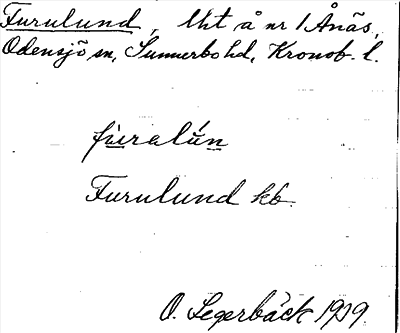 Furulund, lht å nr 1 Ånäs,
Odensjö sn, Sunnerbo hd, Kronob. l.
fùralún
Furulund kb.
O. Segerbäck 1929.